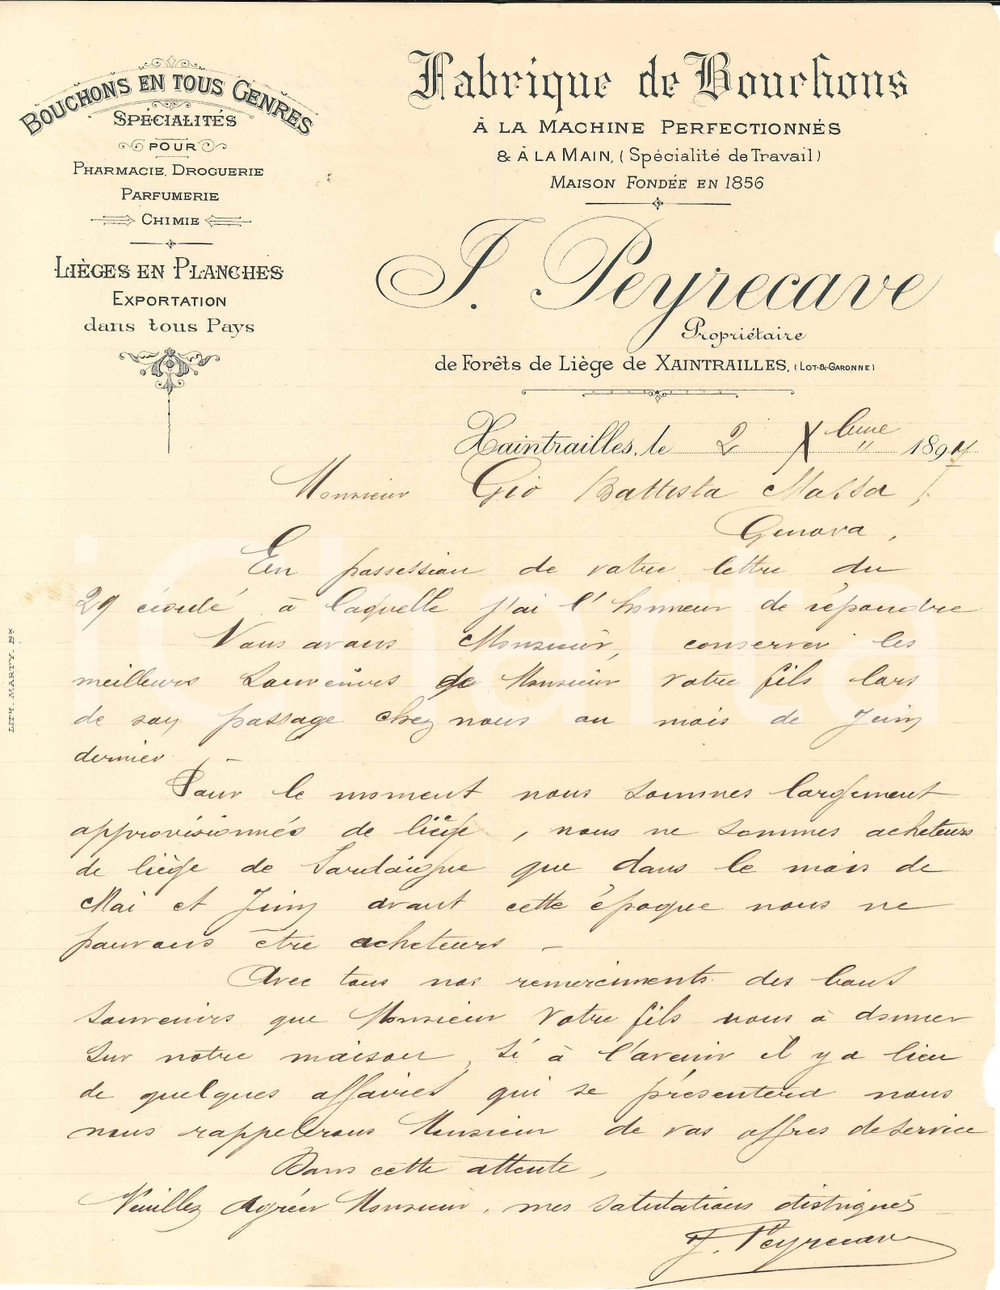 BOUCHONS EN TOUS GENRES
SPÉCIALITÉS
POUR
PHARMACIE, DROGUERIE
PARFUMERIE
CHIMIE
LIÈGES EN PLANCHES
EXPORTATION
dans tous Pays
Fabrique de Bouchons
À LA MACHINE PERFECTIONNÉS
& À LA MAIN, (Spécialité de Travail)
MAISON FONDÉE EN 1856
J. Peyrecave
Propriétaire
de Forêts de Liège de XAINTRAILLES, (LOT-&-GARONNE)
Xaintrailles, le 2 Xbre 1894
Monsieur Gio Battista Massa
Genova,
En possession de votre lettre du
29 écoulé, à laquelle j'ai l'honneur de répondre
Nous avons Monsieur, conserver les
meilleurs souvenirs de Monsieur votre fils lors
de son passage chez nous au mois de Juin
dernier. -
Pour le moment nous sommes largement
approvisionnés de liège, nous ne sommes acheteurs
de liège de Sardaigne que dans le mois de
Mai et Juin avant cette époque nous ne
pouvons être acheteurs -
Avec tous nos remerciments des bons
souvenirs que Monsieur Votre fils vous a donner
sur notre maison, si à l'avenir il y a lieu
de quelques affaires qui se présentera nous
nous rappelerons Monsieur de vos offres de service
Dans cette attente,
Veuillez Agréer Monsieur, mes salutations distingués
J. Peyrecave
LITH. MARTY. BX
iCharta